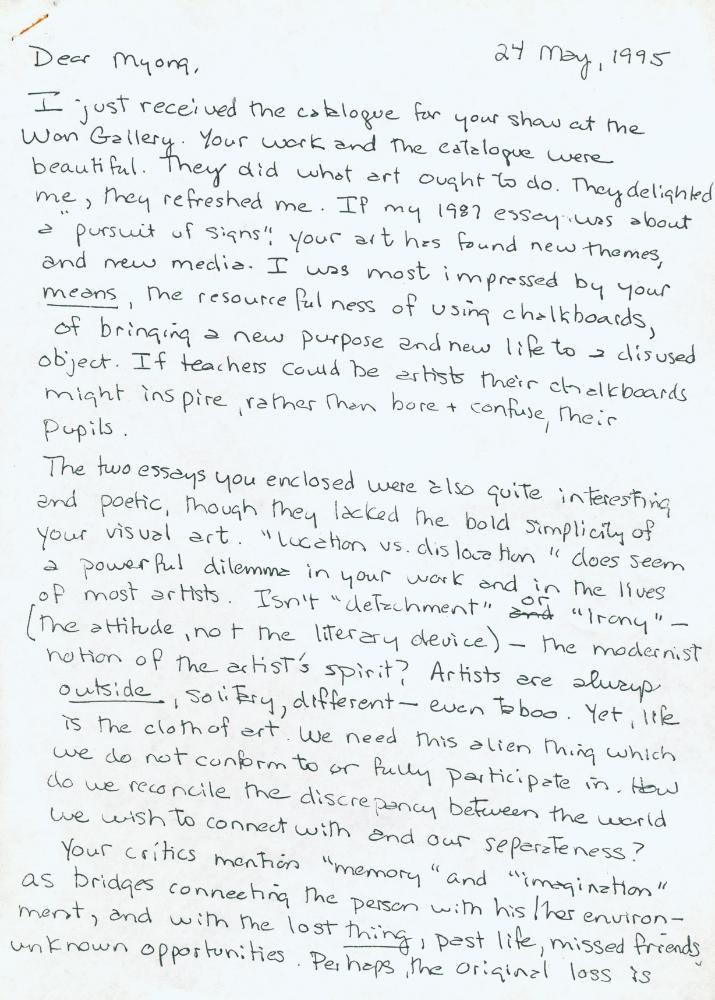 24 May, 1995
Dear Myong,
I just received the catalogue for your show at the
Won Gallery. Your work and the catalogue were
beautiful. They did what art ought to do. They delighted
me, they refreshed me. If my 1987 essay was about
a "pursuit of signs", your art has found new themes,
and new media. I was most impressed by your
means, the resourcefulness of using chalkboards,
of bringing a new purpose and new life to a disused
object. If teachers could be artists their chalkboards
might inspire, rather than bore + confuse, their
pupils.
The two essays you enclosed were also quite interesting
and poetic, though they lacked the bold simplicity of
your visual art. "Location vs. dislocation" does seem
a powerful dilemma in your work and in the lives
of most artists. Isn't "detachment" and or "Irony" —
(the attitude, not the literary device) — the modernist
notion of the artist's spirit? Artists are always
outside, solitary, different — even taboo. Yet, life
is the cloth of art. We need this alien thing which
we do not conform to or fully participate in. How
do we reconcile the discrepancy between the world
we wish to connect with and our separateness?
Your critics mention "memory" and "imagination"
as bridges connecting the person with his/her environ-
ment, and with the lost thing, past life, missed friends,
unknown opportunities. Perhaps, the original loss is